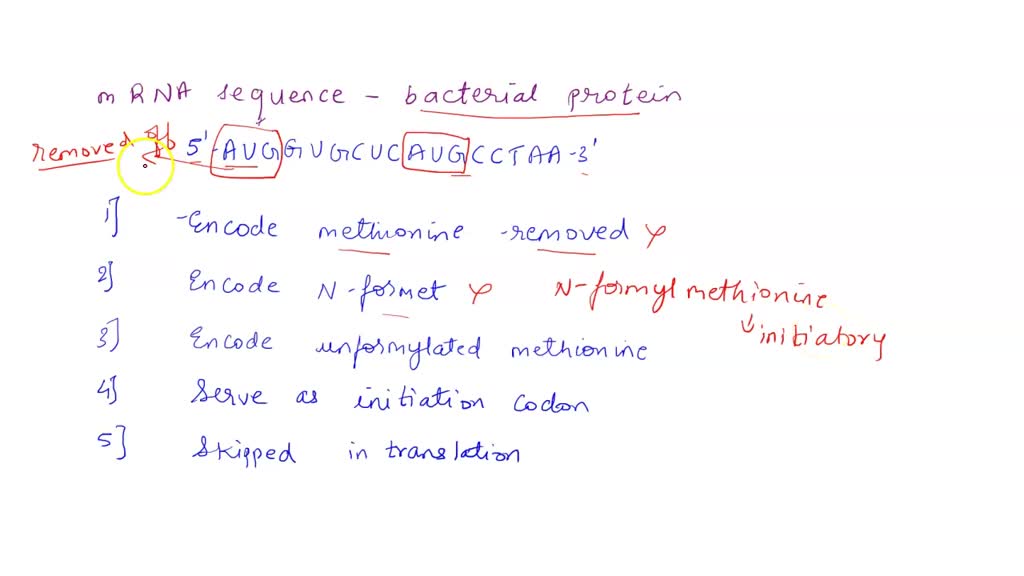 mRNA sequence - bacterial protein
removed off 5'-AUGGUGCUCAUGCCTAA-3'
1] -Encode methionine -removed
2] Encode N-formet N-formylmethionine
initiatory
3] Encode unformylated methionine
4] Serve as initiation codon
5] Skipped in translation